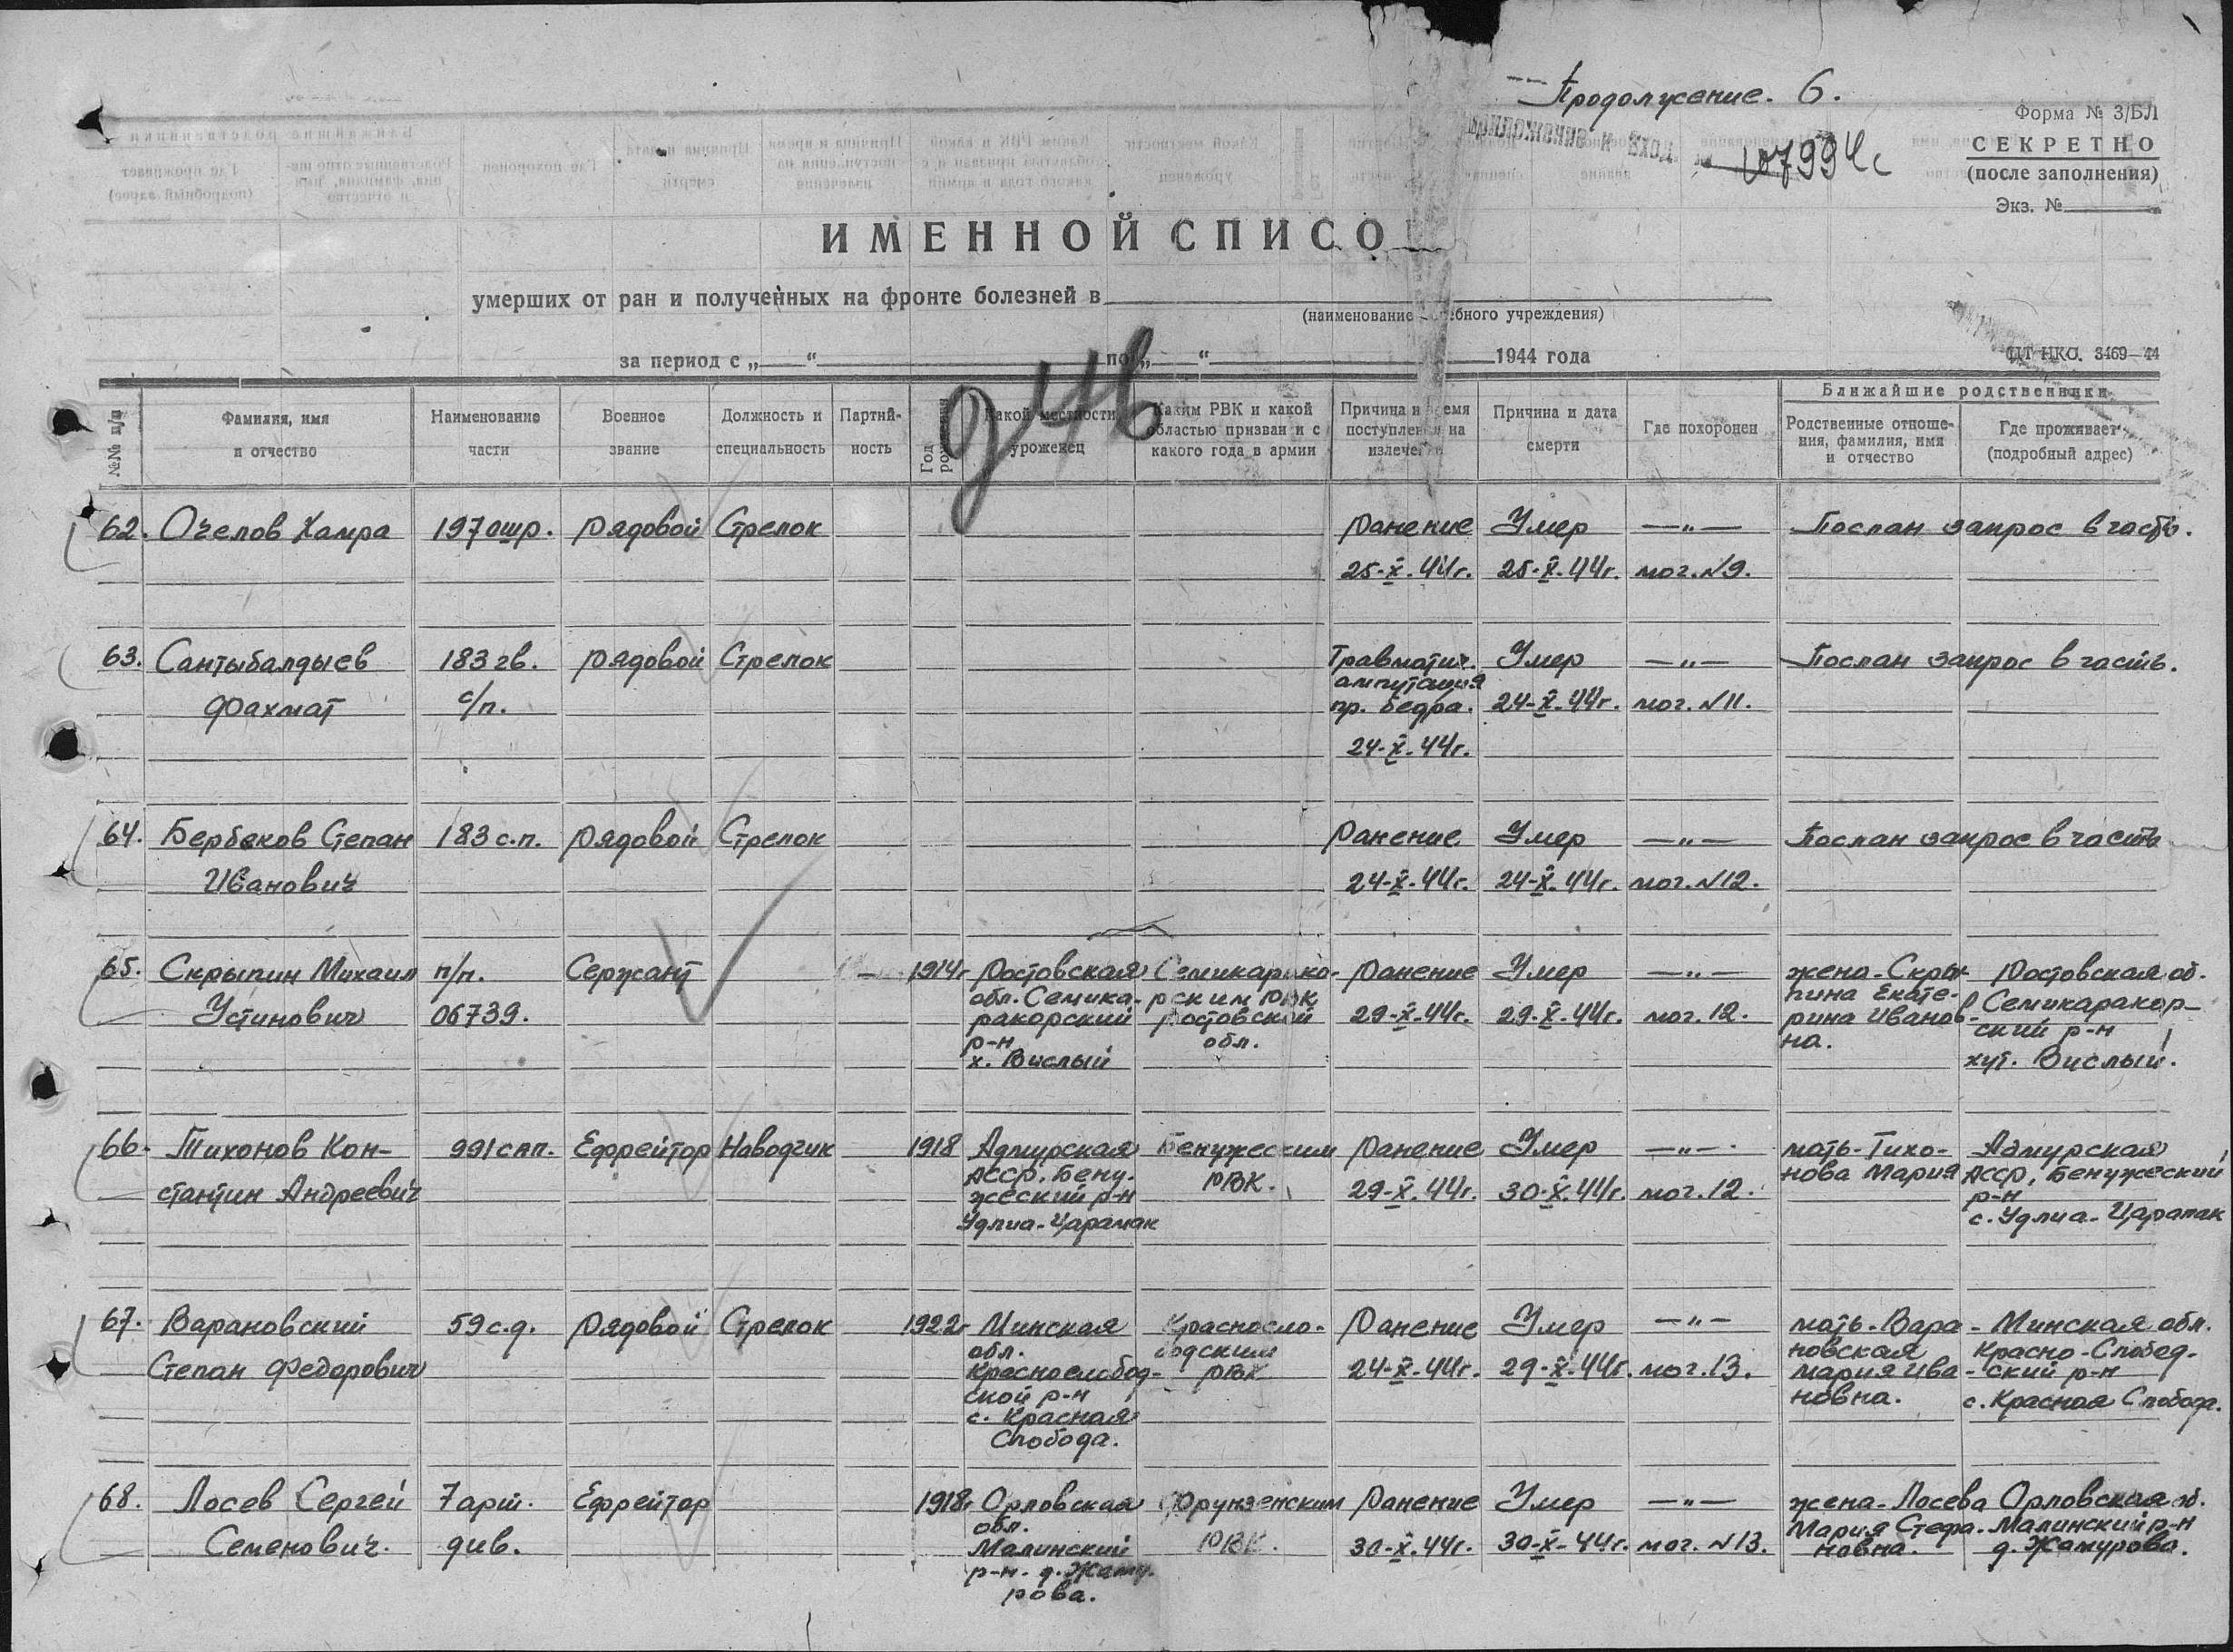 Продолжение. 6.
Форма № 3/БЛ
СЕКРЕТНО
(после заполнения)
Экз. №
107994с
ИМЕННОЙ СПИСО
умерших от ран и полученных на фронте болезней в
(наименование ебного учреждения)
за период с „ “ по „ “ 1944 года
ЦТ НКО. 3469—44
№№ п/п
Фамилия, имя и отчество
Наименование части
Военное звание
Должность и специальность
Партий-ность
Год
Какой местности уроженец
Каким РВК и какой областью призван и с какого года в армии
Причина и время поступления на излечение
Причина и дата смерти
Где похоронен
Ближайшие родственники
Родственные отноше-ния, фамилия, имя и отчество
Где проживает (подробный адрес)
62. Очелов Хамра 197 ошр. рядовой Стрелок Ранение Умер —„— Послан запрос в часть.
25-X-44г. 25-X-44г. мог. №9.
63. Сантыбалдыев 183 гв. рядовой Стрелок Травматич. Умер —„— Послан запрос в часть.
ампутация
Фахмат с/п. пр. бедра. 24-X-44г. мог. №11.
24-X-44г.
64. Бербеков Степан 183 с.п. рядовой Стрелок Ранение Умер —„— Послан запрос в часть
Иванович 24-X-44г. 24-X-44г. мог. №12.
65. Скрыпин Михаил п/п. Сержант — 1914г Ростовская Семикарако- Ранение Умер —„— жена-Скры- Ростовская об.
обл. Семика- рским РВК пина Екате- Семикаракор-
Устинович 06739. ракорский Ростовской 29-X-44г. 29-X-44г. мог. 12. рина Иванов- ский р-н
р-н обл. на.
х. Вислый хут. Вислый.
66. Тихонов Кон- 991 с пп. Ефрейтор Наводчик 1918 Адмурская Бенужеским Ранение Умер —„— мать-Тихо- Адмурская
АССР. Бену- нова Мария АССР, Бенужеский
стантин Андреевич жеский р-н РВК. 29-X-44г. 30-X-44г. мог. 12. р-н
Удлиа-Царамак с. Удлиа-Царамак
67. Варановский 59 с.д. рядовой Стрелок 1922г Минская Красносло- Ранение Умер —„— мать-Вара- Минская обл.
обл. бодским новская Красно-Слобед-
Степан Федорович Краснослобод- РВК 24-X-44г. 29-X-44г. мог. 13. Мария Ива- ский р-н
ской р-н новна. с. Красная Слобода.
с. Красная
Слобода.
68. Лосев Сергей 7 арт. Ефрейтор 1918г Орловская Фрунзенским Ранение Умер —„— жена-Лосева Орловская об.
обл. Мария Стефа- Малинский р-н
Семенович. див. Малинский РВК. 30-X-44г. 30-X-44г. мог. №13. новна. д. Жамурова.
р-н. д. Жаму-
рова.